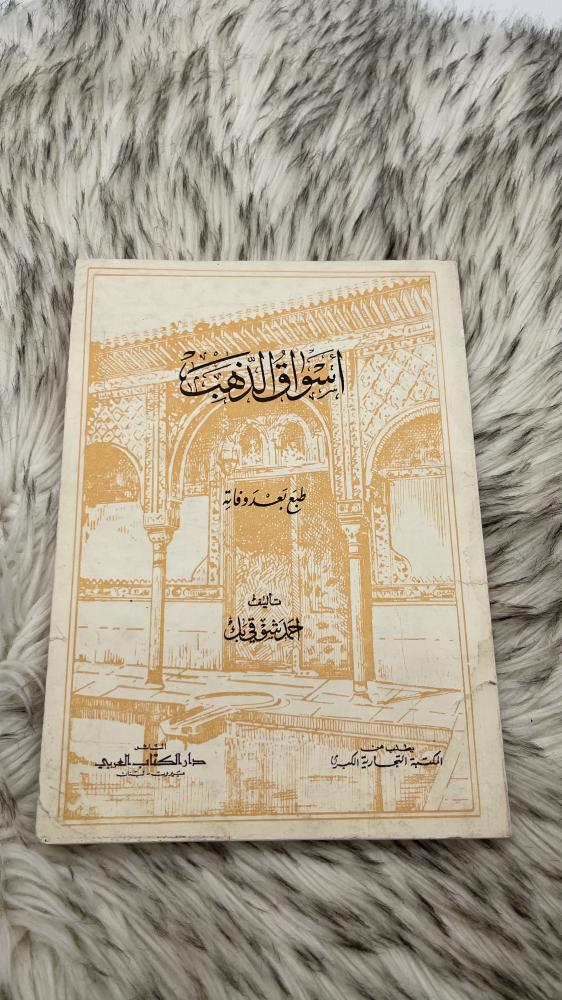 أسواق الذهب
طبع بعد وفاته
تأليف
احمد شوقي بك
يطلب من
المكتبة التجارية الكبرى
الناشر
دار الكتاب العربي
بيروت - لبنان